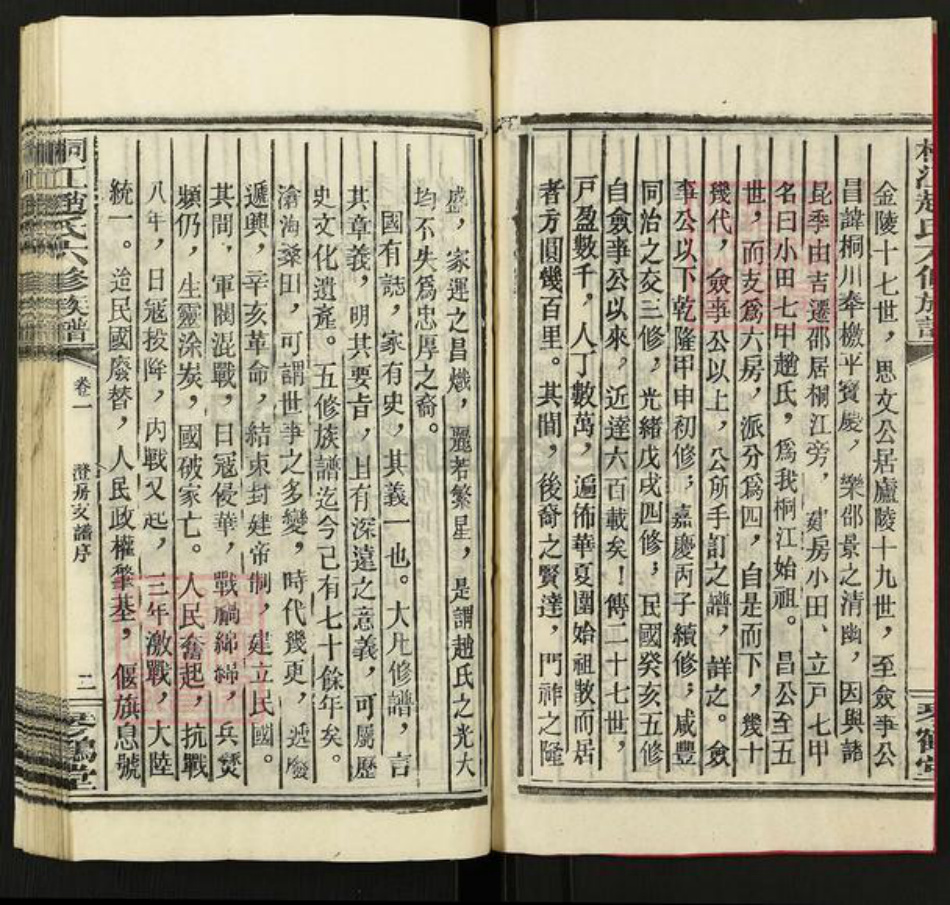 金陵十七世，思文公居廬陵十九世，至僉事公
昌諱桐川奉檄平寳慶，樂邵景之清幽，因與諸
昆季由吉遷邵居桐江旁，建房小田、立戸七甲
名曰小田七甲趙氏，爲我桐江始祖。昌公至五
世，而支爲六房，派分爲四，自是而下，幾十
幾代，僉事公以上，公所手訂之譜，詳之。僉
事公以下乾隆甲申初修；嘉慶丙子續修；咸豐
同治之交三修，光緒戊戌四修；民國癸亥五修
自僉事公以來，近達六百載矣！傳二十七世，
戸盈數千，人丁數萬，遍佈華夏圍始祖散而居
者方圓幾百里。其間，後裔之賢達，門祚之隆
盛，家運之昌熾，麗若繁星，是謂趙氏之光大
均不失爲忠厚之裔。
國有誌，家有史，其義一也。大凡修譜，言
其章義，明其要旨，且有深遠之意義，可屬歷
史文化遺產。五修族譜迄今已有七十餘年矣。
滄海桑田，可謂世事之多變，時代幾更，遞廢
遞興，辛亥革命，結束封建帝制，建立民國。
其間，軍閥混戰，日寇侵華，戰禍綿綿，兵燹
頻仍，生靈涂炭，國破家亡。人民奮起，抗戰
八年，日寇投降，内戰又起，三年激戰，大陸
統一。迨民國廢替，人民政權肇基，偃旗息號
桐江趙氏六修族譜
卷一
澄房支譜序
二
琴鶴堂